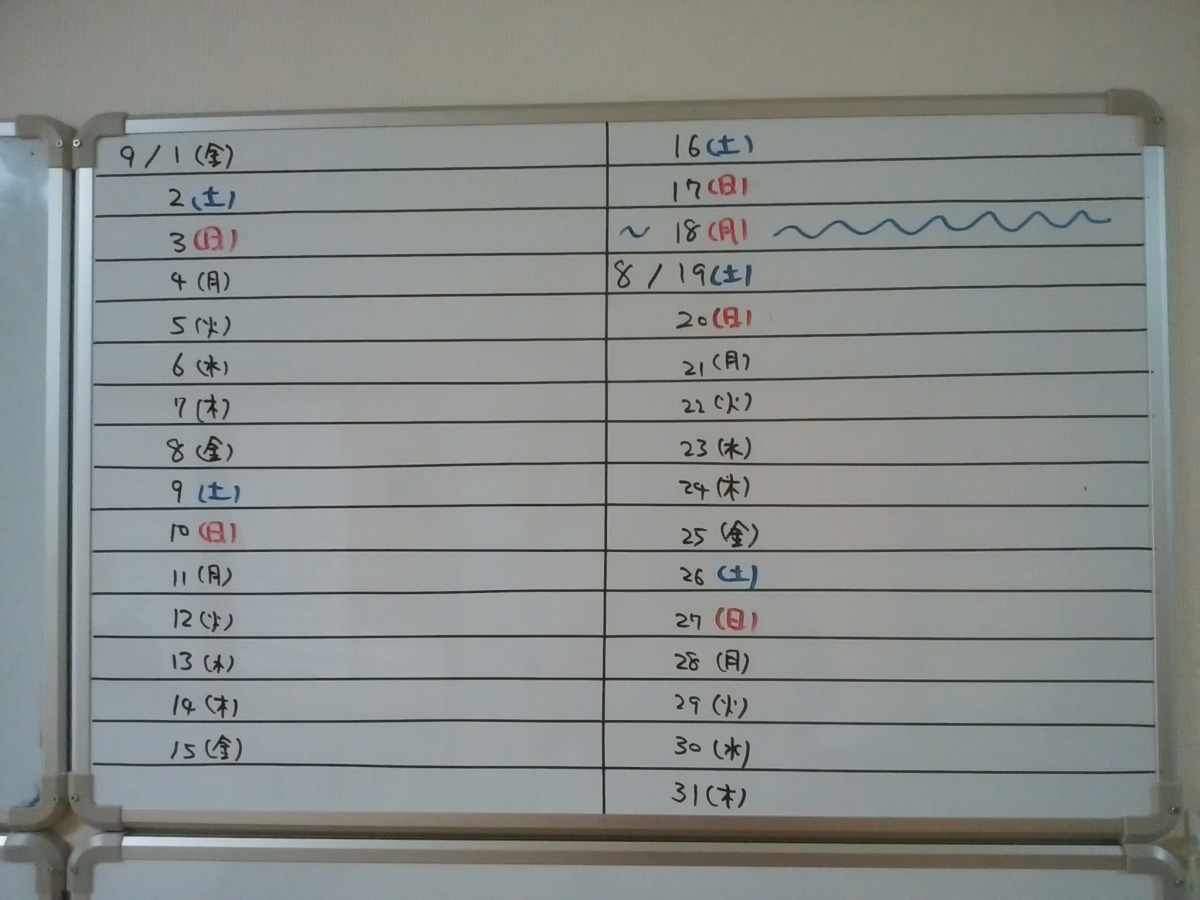 9/1(金)
2(土)
3(日)
4(月)
5(火)
6(水)
7(木)
8(金)
9(土)
10(日)
11(月)
12(火)
13(水)
14(木)
15(金)
16(土)
17(日)
~ 18(月)
8/19(土)
20(日)
21(月)
22(火)
23(水)
24(木)
25(金)
26(土)
27(日)
28(月)
29(火)
30(水)
31(木)